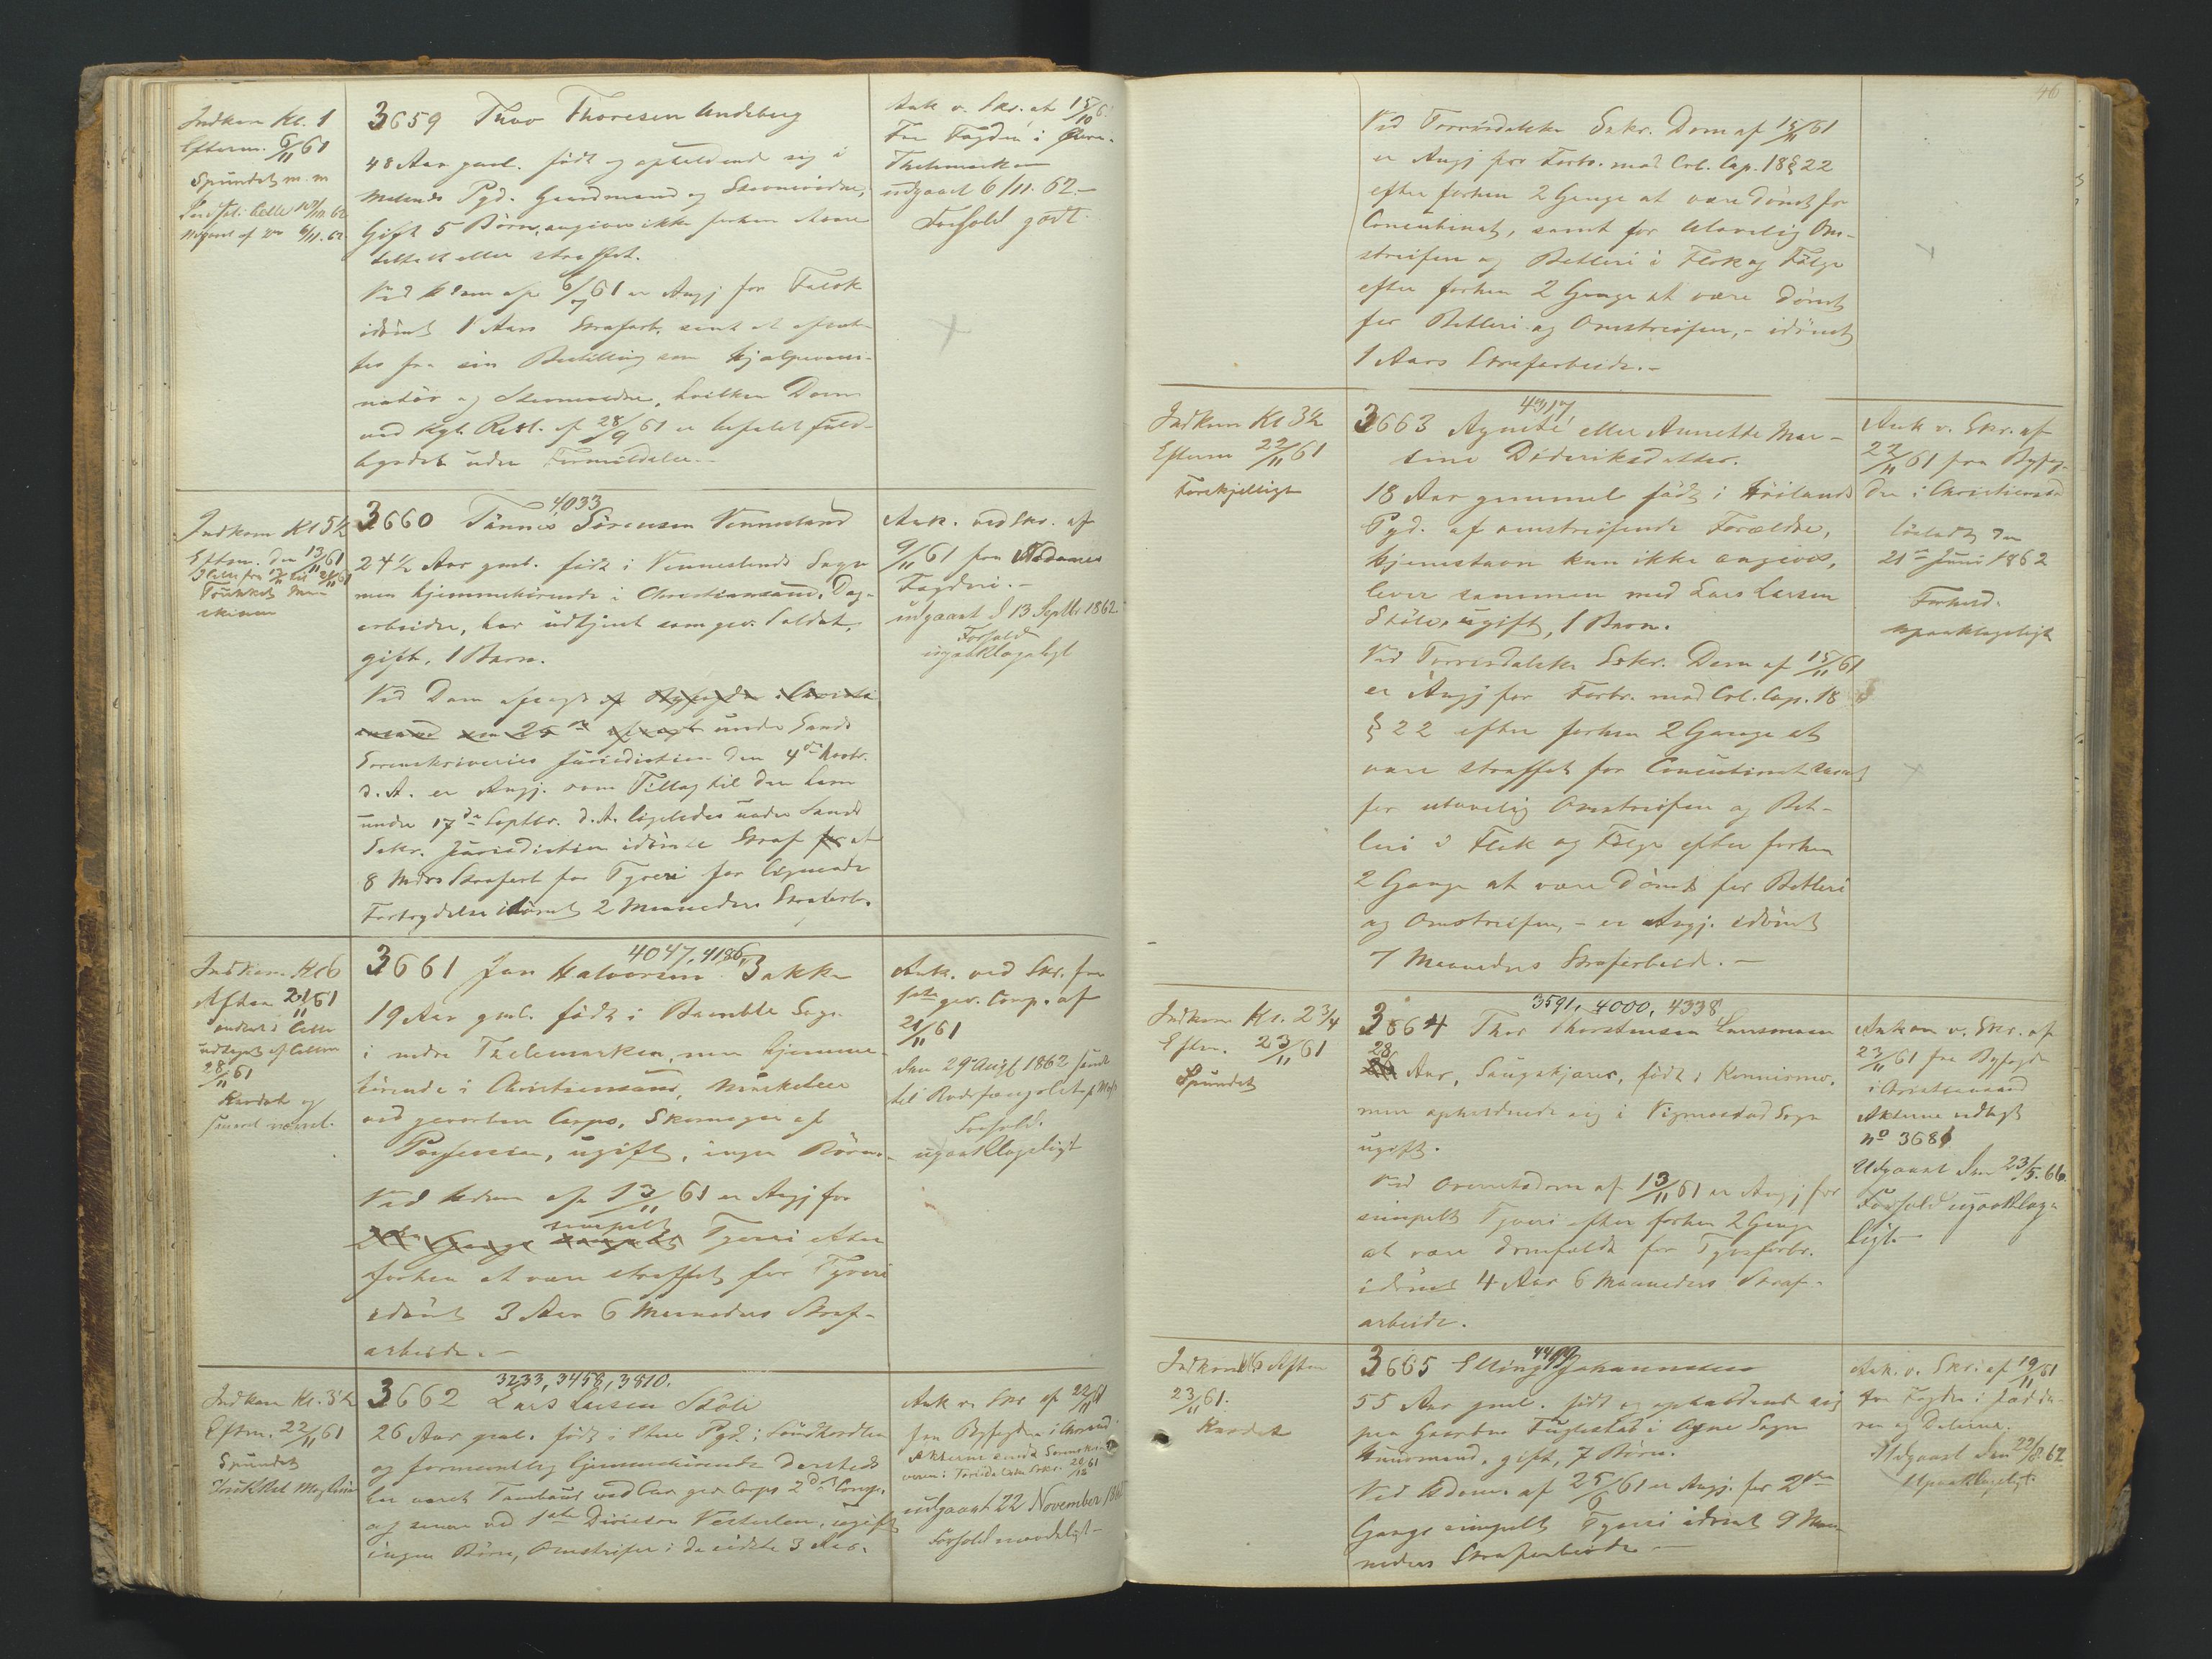 Indkom Kl. 1
Efterm. 6/11 61
Spundet m. m
3659 Thor Thoresen Undeberg
48 Aar gml. født og opholdende sig i
Melands Pgd. Gaardmand og Stevnevidne,
Gift 5 Børn, angiver ikke forhen at være
tiltalt eller straffet.
Ved Hdom af 6/7 61 er Angj for Falsk
idømt 1 Aars Strafarb. samt at afsæt-
tes fra sin Bestilling som
og Stevnevidne, hvilken Dom
ved Kgl. Resl. af 28/9 61 er befalet fuld-
byrdet uden Formildelse.
Ank v. Skr. af 15/10 6
Fra Fogden i Øvre
Thelemarken
udgaaet 6/11. 62.-
Forhold godt.
Indkom Kl 5½
Efterm. den 13/11 61
4033
3660 Tønnes Sørensen Vennesland
24½ Aar gml. født i Venneslands Sogn
men hjemmehørende i Christiansand, Dag-
arbeider, har udtjent som gev. Soldat,
gift, 1 Barn.
Ved Dom afsagt
under Sands
Sorenskriveries Jurisdiction den 4de Novbr.
d. A. er Angj. som Tillæg til den ham
under 17de Septbr. d. A. ligeledes under Sands
Sskr. Jurisdiction idømte Straf af
8 Mdrs Strafarb for Tyveri for lignende
Forbrydelse idømt 2 Maaneders Strafarb.
Ank. ved Skr. af
9/11 61 fra Nedenes
Fogderi.-
udgaaet d 13 Septbr 1862
Forhold
upaaklageligt
Indkom Kl 6
Aften 21/11 61
indsat i Celle
udtaget af Cellen
28/11 61
4047, 4186,
3661 Jan Halvorsen Bakke
19 Aar gml. født i Bamble Sogn
i nedre Thelemarken, men hjemme-
hørende i Christiansand, Musketeer
ved gevorbne Corps, Skomager af
Profession, ugift, ingen Børn.
Ved Hdom af 13/11 61 er Angj for
simpelt
Tyveri efter
forhen at være straffet for Tyveri
idømt 3 Aar 6 Maaneders Straf-
arbeide.-
Ank. ved Skr. fra
1ste gev. Comp. af
21/11 61
den 29 Augs 1862 sendt
til Bodsfængslet
Forhold.
upaaklageligt
Indkom Kl. 3½
Eftm. 22/11 61
Spundet
3233, 3458, 3810.
3662 Lars Larsen Støle
26 Aar gml. født i Pgd. i Søndhordlen
og formentlig hjemmehørende dersteds
har været Tambour ved gev Corps 2de Comp.
og senere ved 1ste Division Vesterlen, ugift
ingen Børn, Omstrifer i de sidste 3 Aar.
Ank v. Skr af 22/11 61
fra Byfogden i Chrsand
udgaaet 22 November 186
Forhold maadeligt-
46
Ved Torrisdalske Sskr. Dom af 15/11 61
er Angj for Forbr. mod Crl. Cap. 18 § 22
efter forhen 2 Gange at være dømt for
Concubinat, samt for ulovlig Om-
streifen og Betleri i Flok og Følge
efter forhen 2 Gange at være dømt
for Betleri og Omstreifen,- idømt
1 Aars Strafarbeide.-
Indkom Kl 3½
Efterm 22/11 61
Forskjelligt
4317
3663 Agnete eller Annette Mar-
tine Dideriksdatter.
18 Aar gammel født i Høilands
Pgd. af omstreifende Forældre,
hjemstavn kan ikke angives,
lever sammen med Lars Larsen
Støle, ugift, 1 Barn.
Ved Torrisdalske Sskr. Dom af 15/11 61
er Angj for Forbr. mod Crl. Cap. 18
§ 22 efter forhen 2 Gange at
være straffet for Concubinat samt
for ulovlig Omstreifen og Bet-
leri i Flok og Følge efter forhen
2 Gange at være dømt for Betleri
og Omstreifen,- er Angj. idømt
7 Maaneders Strafarbeid.-
Ank v. Skr. af
22/11 61 fra Byfog-
den i Christiansand
løsladt den
21de Juni 1862
Forhold.
upaaklageligt
Indkom Kl. 2¾
Eftm. 23/11 61
Spundet
3591, 4000, 4338
3664 Thor Thorstensen
28
Aar, Saugskjærer, født i
men opholdende sig i Vigmostad Sogn
ugift.
Ved Overretsdom af 13/11 61 er Angj for
simpelt Tyveri efter forhen 2 Gange
at være domfældt for Tyvsforbr.
idømt 4 Aar 6 Maaneders Straf-
arbeide.
Ankom v. Skr. af
23/11 61 fra Byfogden
i Christiansand
Akterne udlagt
No 3681
Udgaaet den 23/5. 66.
Forhold upaaklage-
ligt.
Indkom Kl 6 Aften
23/11 61.
4499
3665 Elling Johannesen
55 Aar gml. født og opholdende sig
paa Gaarden Fuglestad i Ogne Sogn
Huusmand, gift, 7 Børn.
Ved Hdom. af 25/6 61 er Angj. for 2den
Gangs simpelt Tyveri idømt 9 Maa-
neders Strafarbeide-
Ank. v. Skr. af 19/11 61
fra Fogden i Jædde-
ren og Dalerne.
Udgaaet den 22/8. 62
Upaaklageligt.